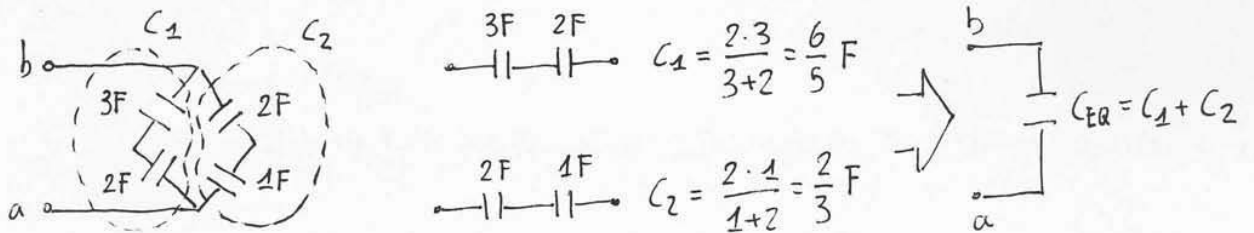 C1 C2
b
3F 2F
2F 1F
a
3F 2F
C1 = 2·3/3+2 = 6/5 F
2F 1F
C2 = 2·1/1+2 = 2/3 F
b
CEQ = C1 + C2
a